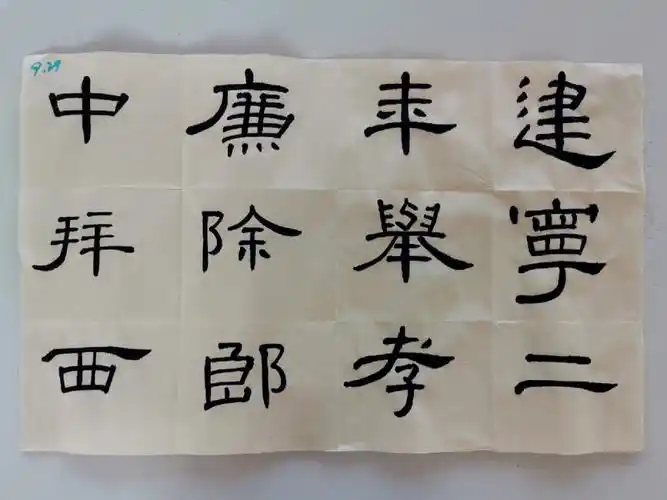 建寧二
年舉孝
廉除郎
中拜西
9.29